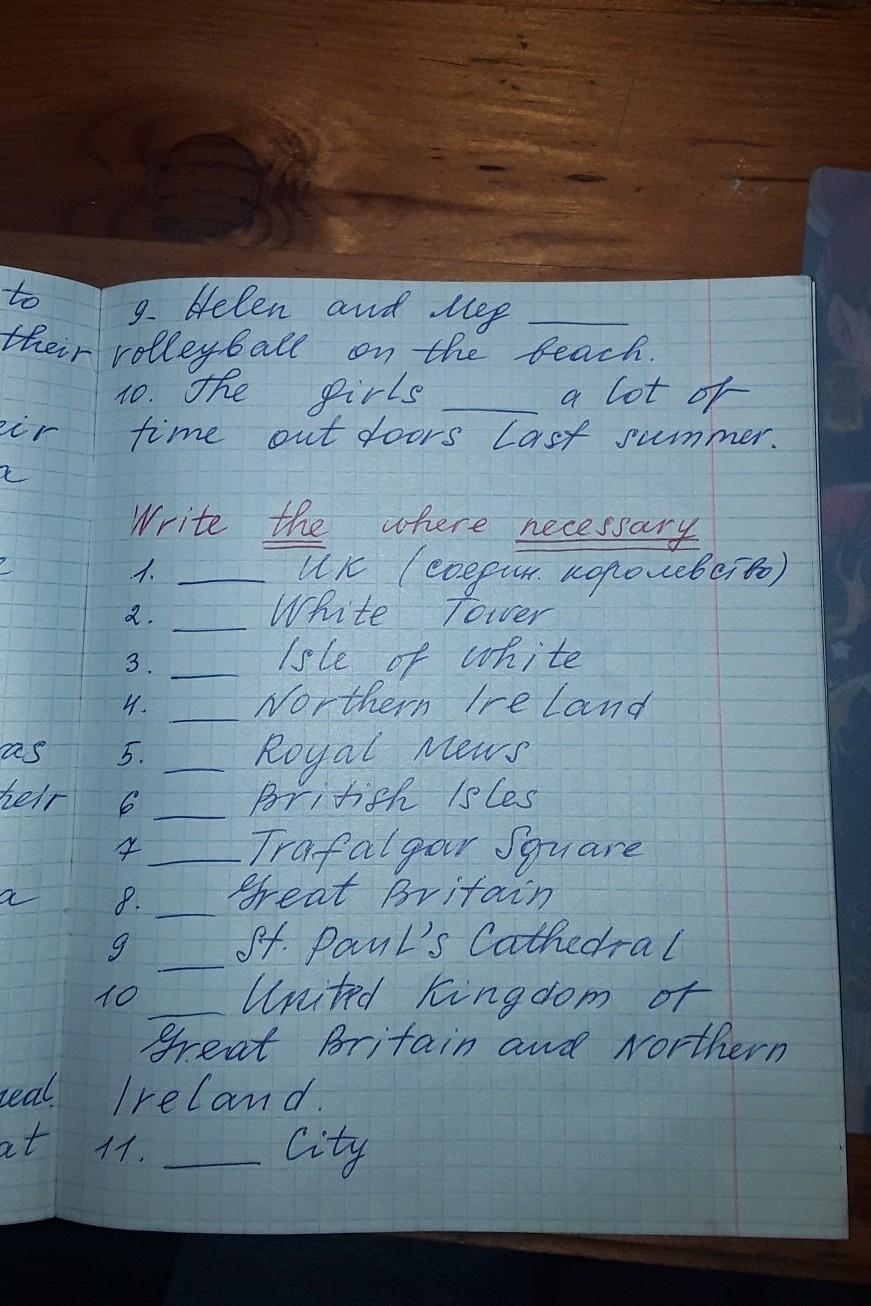 to
their
eir
a
e
as
heir
a
neal.
at
9. Helen and Meg ____
volleyball on the beach.
10. The girls ____ a lot of
time outdoors last summer.
Write the where necessary
1. ____ UK (соедин. королевство)
2. ____ White Tower
3. ____ Isle of White
4. ____ Northern Ireland
5. ____ Royal Mews
6 ____ British Isles
7 ____ Trafalgar Square
8. ____ Great Britain
9 ____ St. Paul's Cathedral
10 ____ United Kingdom of
Great Britain and Northern
Ireland.
11. ____ City